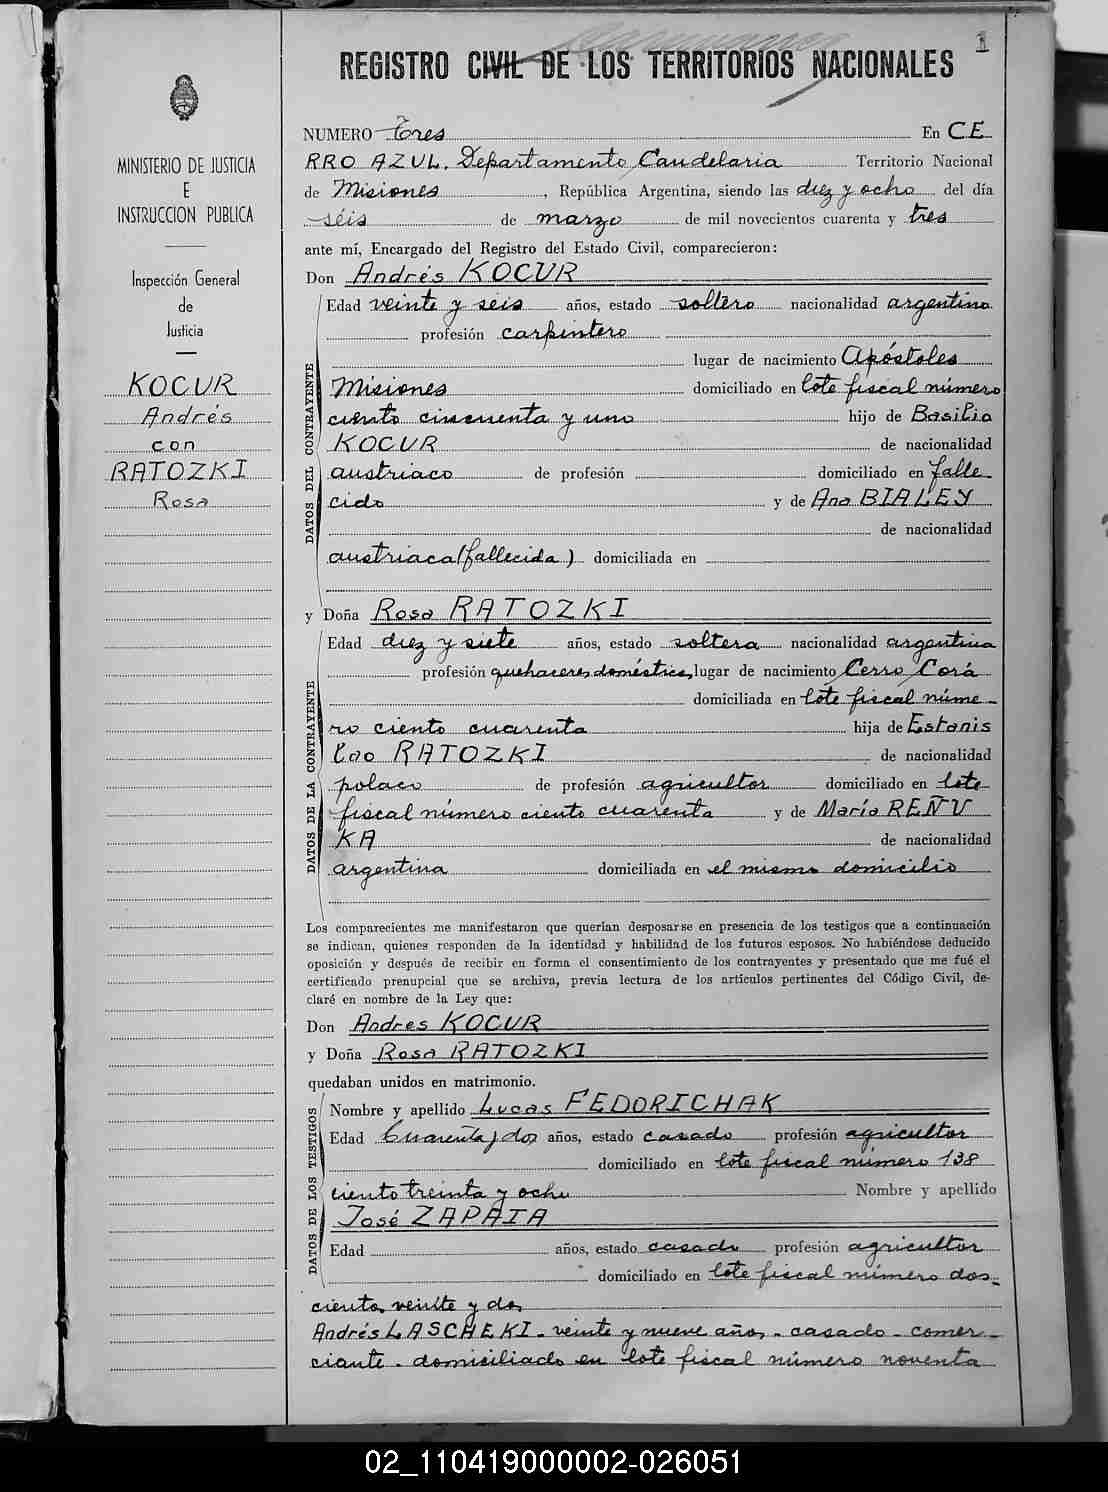 1
REGISTRO CIVIL DE LOS TERRITORIOS NACIONALES
MINISTERIO DE JUSTICIA
E
INSTRUCCION PUBLICA
Inspección General
de
Justicia
KOCUR
Andrés
con
RATOZKI
Rosa
NUMERO Tres En CE
RRO AZUL, Departamento Candelaria Territorio Nacional
de Misiones, República Argentina, siendo las diez y ocho del día
séis de marzo de mil novecientos cuarenta y tres
ante mí, Encargado del Registro del Estado Civil, comparecieron:
Don Andrés KOCUR
DATOS DEL CONTRAYENTE
Edad veinte y seis años, estado soltero nacionalidad argentina
profesión carpintero
lugar de nacimiento Apóstoles
Misiones domiciliado en lote fiscal número
ciento cincuenta y uno hijo de Basilio
KOCUR de nacionalidad
austriaco de profesión domiciliado en falle
cido y de Ana BIALEY
de nacionalidad
austriaca (fallecida) domiciliada en
y Doña Rosa RATOZKI
DATOS DE LA CONTRAYENTE
Edad diez y siete años, estado soltera nacionalidad argentina
profesión quehaceres domésticos lugar de nacimiento Cerro Corá
domiciliada en lote fiscal núme-
ro ciento cuarenta hija de Estanis
lao RATOZKI de nacionalidad
polaco de profesión agricultor domiciliado en lote
fiscal número ciento cuarenta y de María REÑU
KA de nacionalidad
argentina domiciliada en el mismo domicilio
Los comparecientes me manifestaron que querían desposarse en presencia de los testigos que a continuación
se indican, quienes responden de la identidad y habilidad de los futuros esposos. No habiéndose deducido
oposición y después de recibir en forma el consentimiento de los contrayentes y presentado que me fué el
certificado prenupcial que se archiva, previa lectura de los artículos pertinentes del Código Civil, de-
claré en nombre de la Ley que:
Don Andres KOCUR
y Doña Rosa RATOZKI
quedaban unidos en matrimonio.
DATOS DE LOS TESTIGOS
Nombre y apellido Lucas FEDORICHAK
Edad Cuarenta y dos años, estado casado profesión agricultor
domiciliado en lote fiscal número 138
ciento treinta y ocho Nombre y apellido
José ZAPATA
Edad años, estado casado profesión agricultor
domiciliado en lote fiscal número dos-
cientos veinte y dos
Andrés LASCHEKI - veinte y nueve años - casado - comer-
ciante - domiciliado en lote fiscal número noventa
02_110419000002-026051